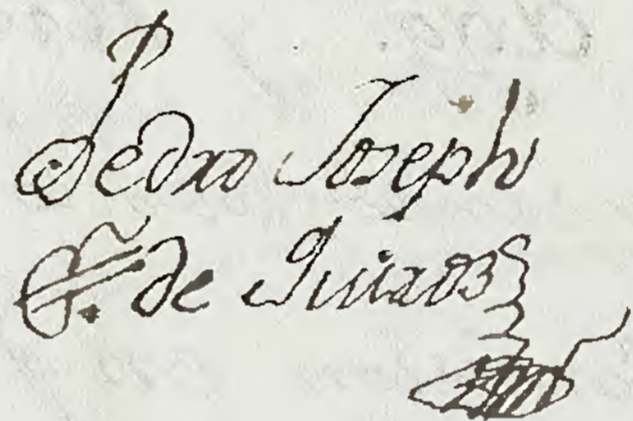 Pedro Joseph
de Quiros